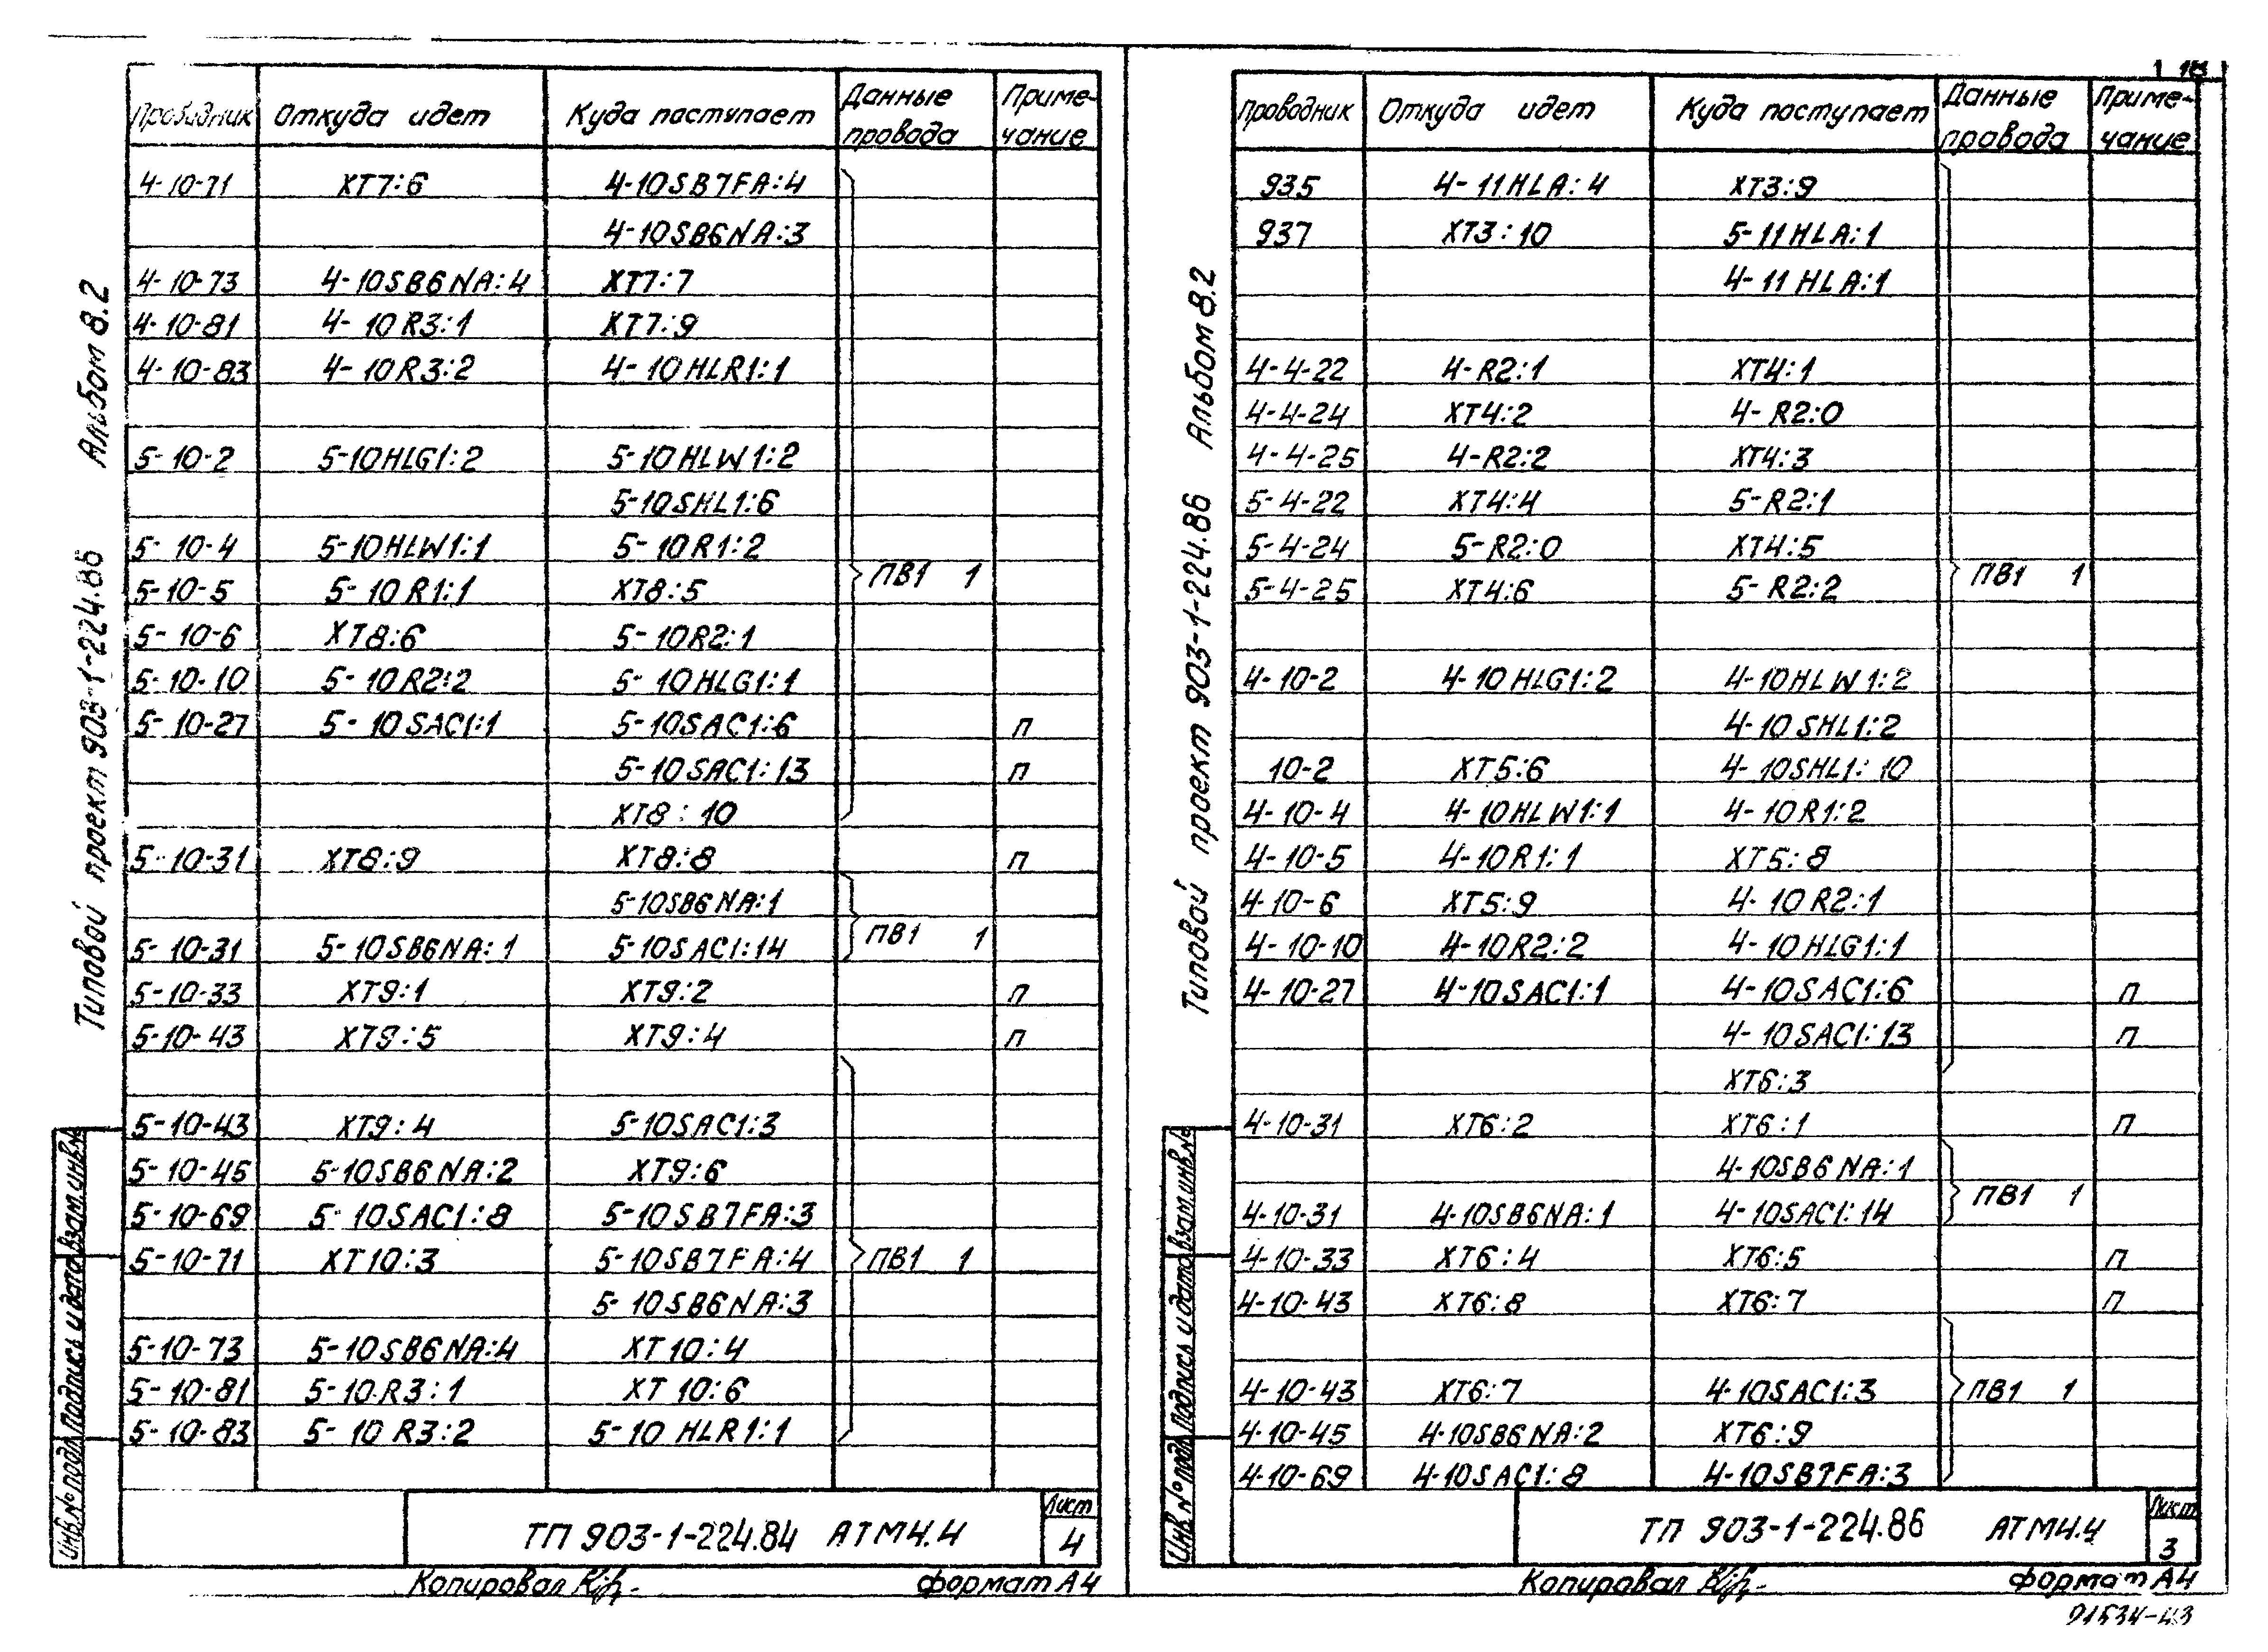 18
Проводник Откуда идет Куда поступает Данные провода Приме-чание
4-10-71 XT7:6 4-10SB7FA:4
4-10SB6NA:3
4-10-73 4-10SB6NA:4 XT7:7
4-10-81 4-10R3:1 XT7:9
4-10-83 4-10R3:2 4-10HLR1:1
5-10-2 5-10HLG1:2 5-10HLW1:2
5-10SHL1:6
5-10-4 5-10HLW1:1 5-10R1:2
5-10-5 5-10R1:1 XT8:5 ПВ1 1
5-10-6 XT8:6 5-10R2:1
5-10-10 5-10R2:2 5-10HLG1:1
5-10-27 5-10SAC1:1 5-10SAC1:6 п
5-10SAC1:13 п
XT8:10
5-10-31 XT8:9 XT8:8 п
5-10SB6NA:1
5-10-31 5-10SB6NA:1 5-10SAC1:14 ПВ1 1
5-10-33 XT9:1 XT9:2 п
5-10-43 XT9:5 XT9:4 п
5-10-43 XT9:4 5-10SAC1:3
5-10-45 5-10SB6NA:2 XT9:6
5-10-69 5-10SAC1:8 5-10SB7FA:3
5-10-71 XT10:3 5-10SB7FA:4 ПВ1 1
5-10SB6NA:3
5-10-73 5-10SB6NA:4 XT10:4
5-10-81 5-10R3:1 XT10:6
5-10-83 5-10R3:2 5-10HLR1:1
Типовой проект 903-1-224.86 Альбом 8.2
Инв.№ подл. Подпись и дата Взам.инв.№
ТП 903-1-224.84 АТМ4.4
Лист
4
Копировал
формат А4
Проводник Откуда идет Куда поступает Данные провода Приме-чание
935 4-11HLA:4 XT3:9
937 XT3:10 5-11HLA:1
4-11HLA:1
4-4-22 4-R2:1 XT4:1
4-4-24 XT4:2 4-R2:0
4-4-25 4-R2:2 XT4:3
5-4-22 XT4:4 5-R2:1
5-4-24 5-R2:0 XT4:5
5-4-25 XT4:6 5-R2:2 ПВ1 1
4-10-2 4-10HLG1:2 4-10HLW1:2
4-10SHL1:2
10-2 XT5:6 4-10SHL1:10
4-10-4 4-10HLW1:1 4-10R1:2
4-10-5 4-10R1:1 XT5:8
4-10-6 XT5:9 4-10R2:1
4-10-10 4-10R2:2 4-10HLG1:1
4-10-27 4-10SAC1:1 4-10SAC1:6 п
4-10SAC1:13 п
XT6:3
4-10-31 XT6:2 XT6:1 п
4-10SB6NA:1
4-10-31 4-10SB6NA:1 4-10SAC1:14 ПВ1 1
4-10-33 XT6:4 XT6:5 п
4-10-43 XT6:8 XT6:7 п
4-10-43 XT6:7 4-10SAC1:3 ПВ1 1
4-10-45 4-10SB6NA:2 XT6:9
4-10-69 4-10SAC1:8 4-10SB7FA:3
Типовой проект 903-1-224.86 Альбом 8.2
Инв.№ подл. Подпись и дата Взам.инв.№
ТП 903-1-224.86 АТМ4.4
Лист
3
Копировал
формат А4
21534-43